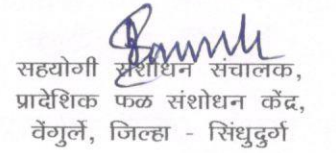 सहयोगी संशोधन संचालक,
प्रादेशिक फळ संशोधन केंद्र,
वेंगुर्ले, जिल्हा - सिंधुदुर्ग